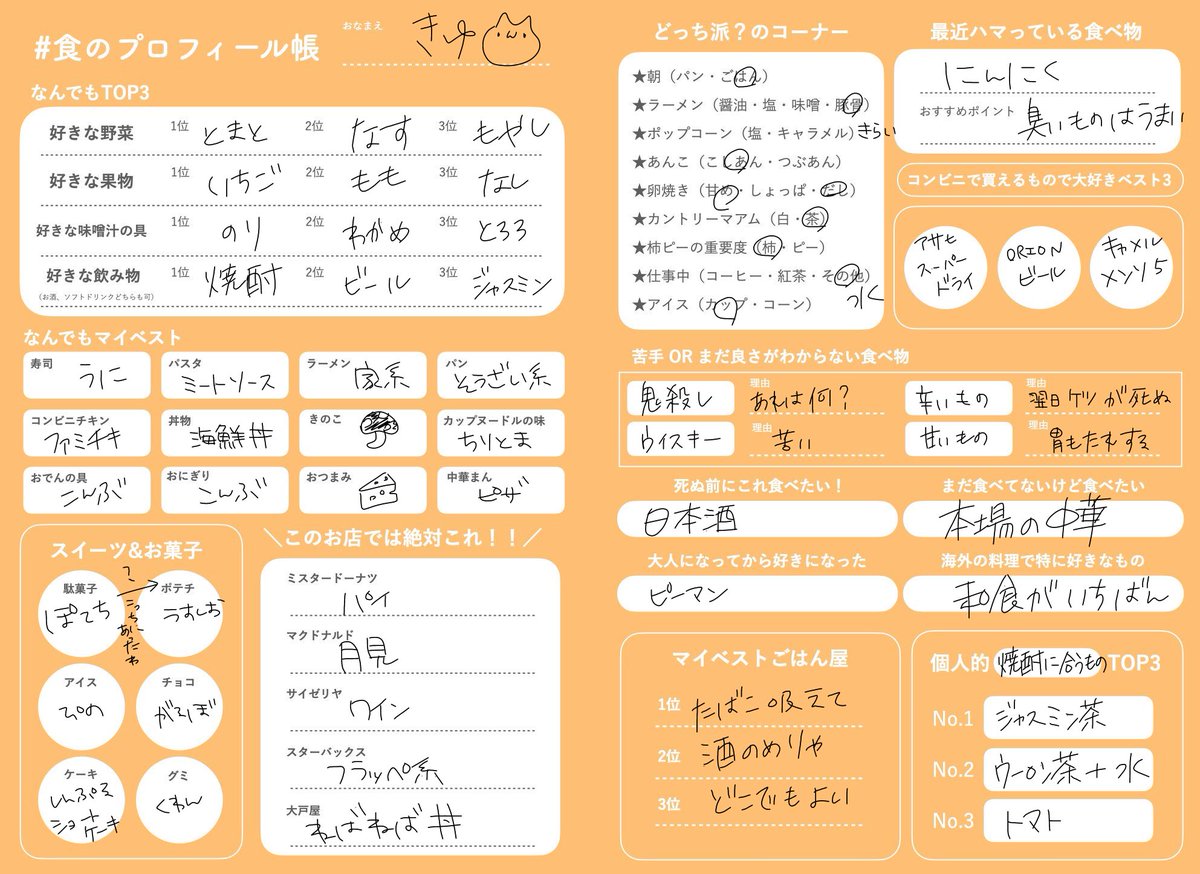 #食のプロフィール帳
おなまえ きゅ
なんでもTOP3
好きな野菜 1位 とまと 2位 なす 3位 もやし
好きな果物 1位 いちご 2位 もも 3位 なし
好きな味噌汁の具 1位 のり 2位 わかめ 3位 とろろ
好きな飲み物 1位 焼酎 2位 ビール 3位 ジャスミン
(お酒、ソフトドリンクどちらも可)
なんでもマイベスト
寿司 うに
パスタ ミートソース
ラーメン 家系
パン そうざい系
コンビニチキン ファミチキ
丼物 海鮮丼
きのこ
カップヌードルの味 ちりとま
おでんの具 こんぶ
おにぎり こんぶ
おつまみ
中華まん ピザ
スイーツ&お菓子
駄菓子 ぽてち
?
こっちにあったわ
ポテチ うすしお
アイス ぴの
チョコ がるぼ
ケーキ しんぷるショートケーキ
グミ くわん
＼このお店では絶対これ！！／
ミスタードーナツ
パイ
マクドナルド
月見
サイゼリヤ
ワイン
スターバックス
フラッペ系
大戸屋
ねばねば丼
どっち派？のコーナー
★朝（パン・ごはん）
★ラーメン（醤油・塩・味噌・豚骨）
★ポップコーン（塩・キャラメル）きらい
★あんこ（こしあん・つぶあん）
★卵焼き（甘め・しょっぱ・だし）
★カントリーマアム（白・茶）
★柿ピーの重要度（柿・ピー）
★仕事中（コーヒー・紅茶・その他）
水
★アイス（カップ・コーン）
最近ハマっている食べ物
にんにく
おすすめポイント 臭いものはうまい
コンビニで買えるもので大好きベスト3
アサヒ
スーパー
ドライ
ORION
ビール
キャメル
メンソ5
苦手 OR まだ良さがわからない食べ物
鬼殺し 理由 あれは何？
辛いもの 理由 翌日ケツが死ぬ
ウイスキー 理由 苦い
甘いもの 理由 胃もたれする
死ぬ前にこれ食べたい！
日本酒
まだ食べてないけど食べたい
本場の中華
大人になってから好きになった
ピーマン
海外の料理で特に好きなもの
和食がいちばん
マイベストごはん屋
1位 たばこ吸えて
2位 酒のめりゃ
3位 どこでもよい
個人的 焼酎に合うもの TOP3
No.1 ジャスミン茶
No.2 ウーロン茶＋水
No.3 トマト